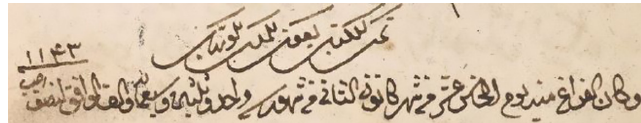 تمت الكتاب بعون الملك الوهاب
١١٤٣
وكان الفراغ منه يوم الخامس عشر في شهر كانون الثاني في شهور سنه واحد وثلثين وسبعمايه والف الموافق لنصف رجب